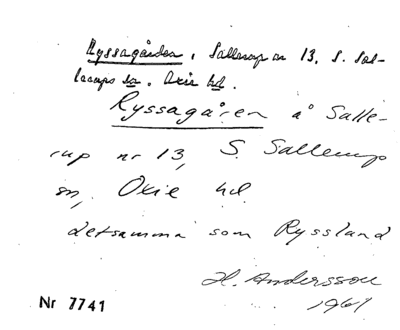 Ryssagården, Sallerup nr 13, S. Sal-
lerups sn. Oxie hd.
Ryssagåren å Salle-
rup nr 13, S. Sallerup
sn, Oxie hd.
detsamma som Ryssland
H. Andersson
1961
Nr 7741